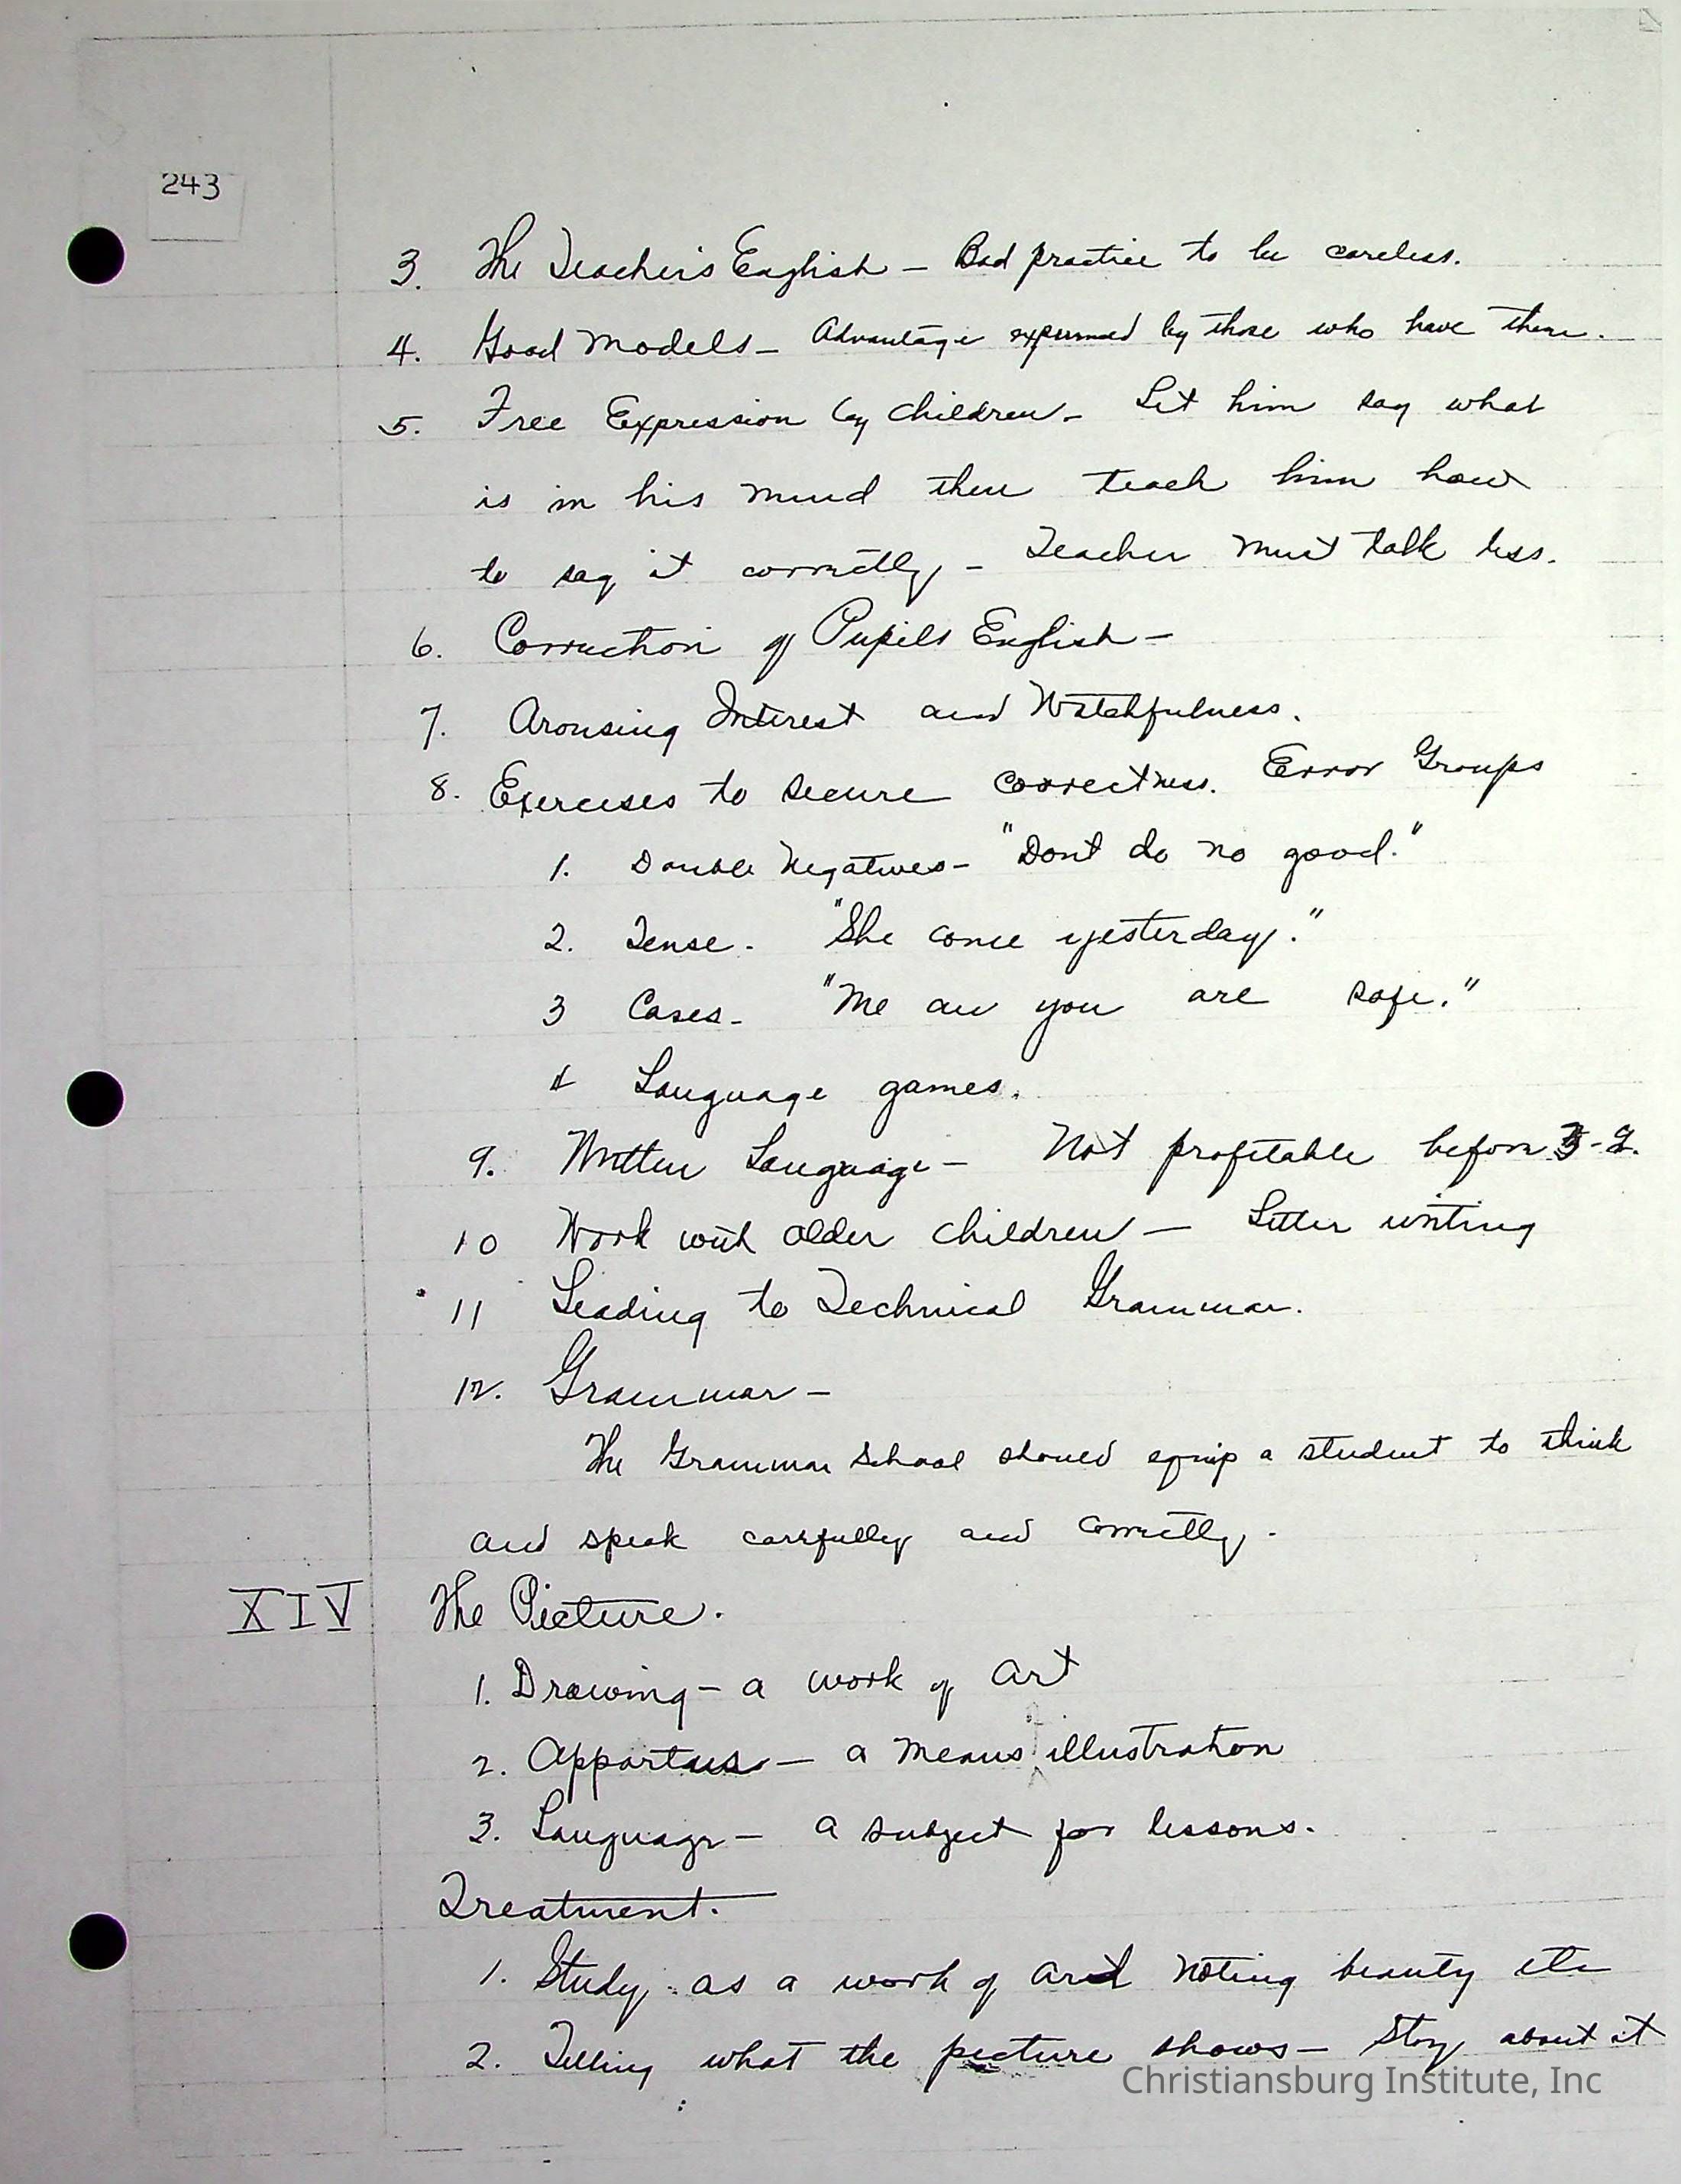 243
3. The Teacher's English — Bad practice to be careless.
4. Good Models — Advantage by those who have them.
5. Free Expression by children — Let him say what
is in his mind then teach him how
to say it correctly — Teacher must talk less.
6. Correction of Pupils English —
7. Arousing Interest and Watchfulness.
8. Exercises to secure correctness. Error Groups
1. Double Negatives — "Dont do no good."
2. Tense. "She come yesterday."
3 Cases — "Me an you are safe."
4 Language games.
9. Written Language — Not profitable before
10 Work with older children — Letter writing
11 Leading to Technical Grammar.
12. Grammar —
The Grammar School should equip a student to think
and speak carefully and correctly.
XIV The Picture.
1. Drawing — a work of art
2. Appartaus — a means illustration
3. Language — a subject for lessons.
Treatment.
1. Study as a work of art noting beauty etc
2. Telling what the picture shows — Story about it
Christiansburg Institute, Inc